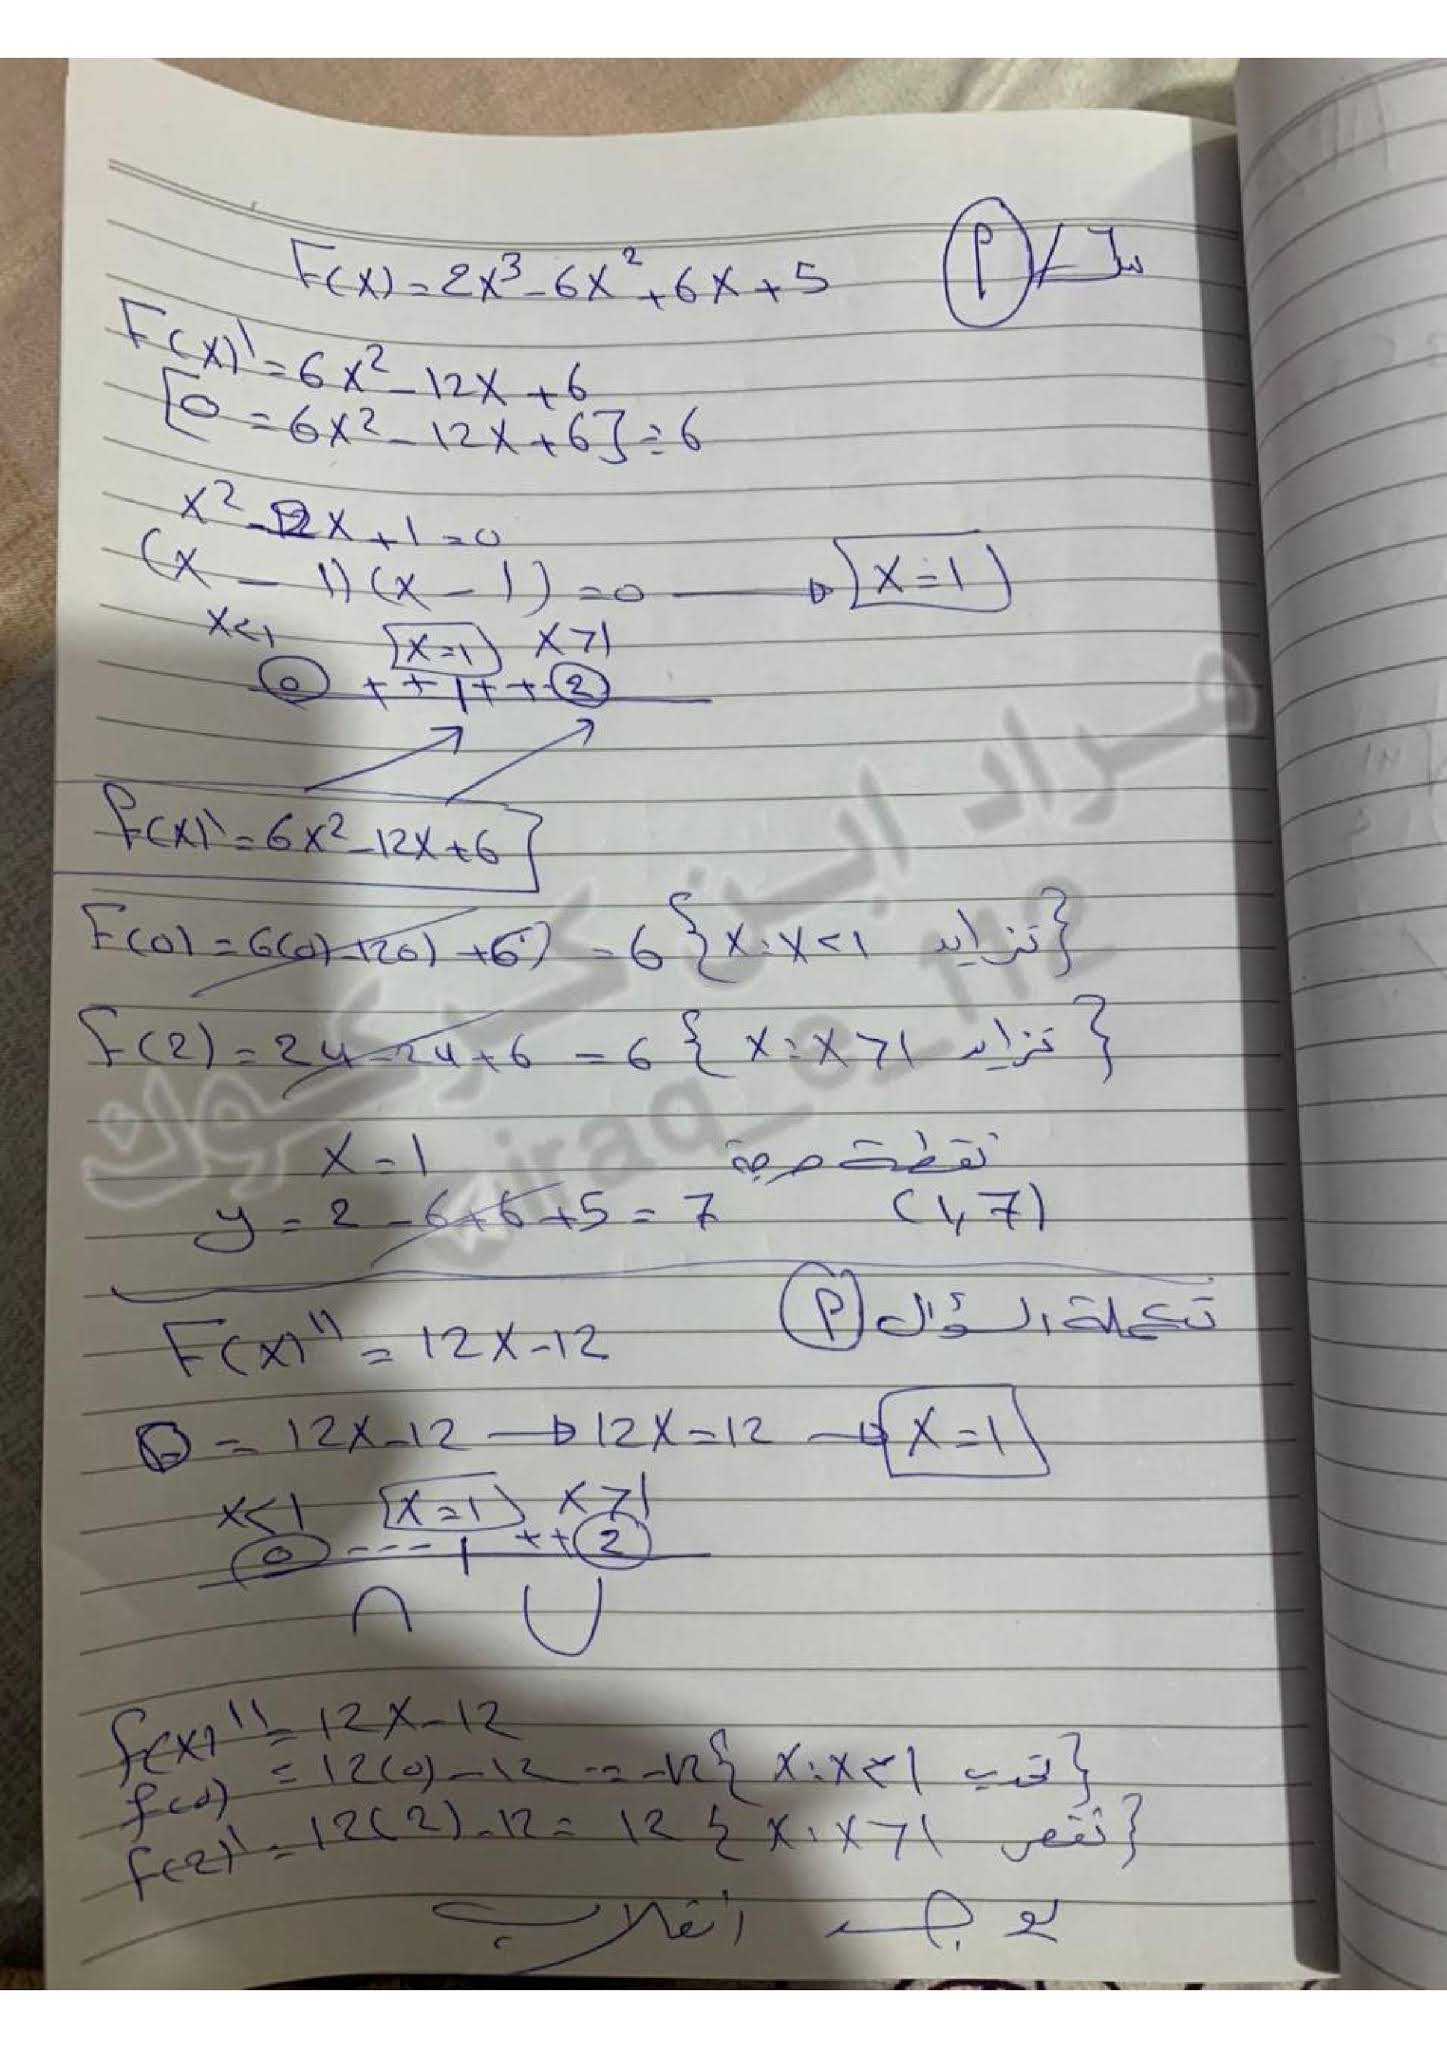 س1/ P
F(x) = 2x³ - 6x² + 6x + 5
F(x)' = 6x² - 12x + 6
[0 = 6x² - 12x + 6] ÷ 6
x² - 2x + 1 = 0
(x - 1)(x - 1) = 0 → x = 1
x<1 x=1 x>1
0 + + 1 + + 2
f(x)' = 6x² - 12x + 6
F(0) = 6(0) - 12(0) + 6 = 6 {x: x<1 تزايد}
f(2) = 24 - 24 + 6 = 6 {x: x>1 تزايد}
x = 1 نقطة حرجة
y = 2 - 6 + 6 + 5 = 7 (1, 7)
تكملة السؤال P
F(x)'' = 12x - 12
0 = 12x - 12 → 12x = 12 → x = 1
x<1 x=1 x>1
0 --- 1 ++ 2
∩ ∪
f(x)'' = 12x - 12
f(0) = 12(0) - 12 = -12 {x: x<1 تحدب}
f(2)' = 12(2) - 12 = 12 {x: x>1 تقعر}
يوجد انقلاب
مراد ابن كركوك
iraq_e_112